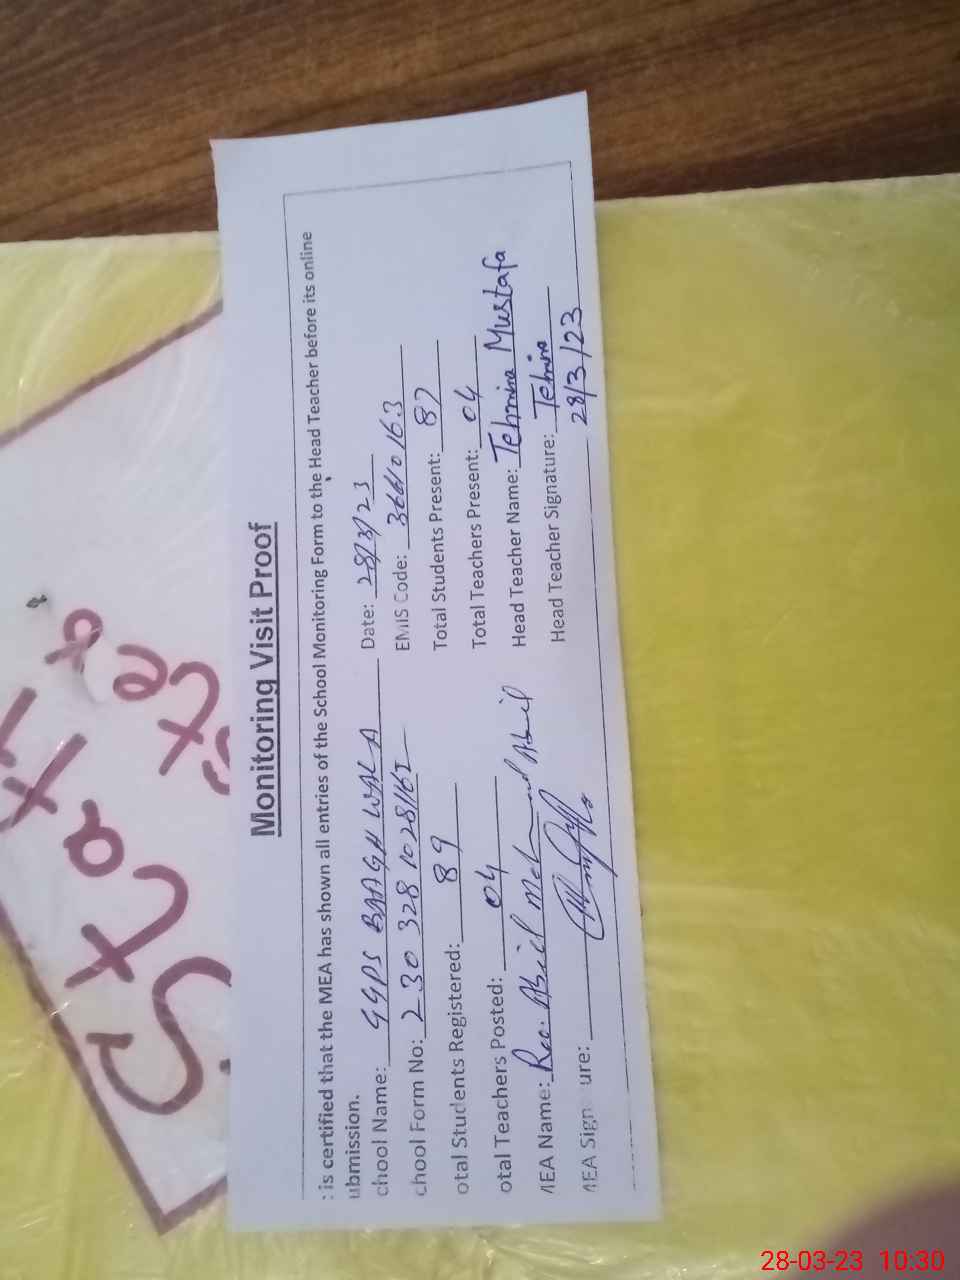 Monitoring Visit Proof
: is certified that the MEA has shown all entries of the School Monitoring Form to the Head Teacher before its online
ubmission.
chool Name: GGPS BAAGH WALA Date: 28/3/23
chool Form No: 230 328 10281162 EMIS Code: 36610163
otal Students Registered: 89 Total Students Present: 87
otal Teachers Posted: 04 Total Teachers Present: 04
MEA Name: Rao. Head Teacher Name: Tehmina Mustafa
MEA Sign ure: Head Teacher Signature: Tehmina
28/3/23
28-03-23 10:30